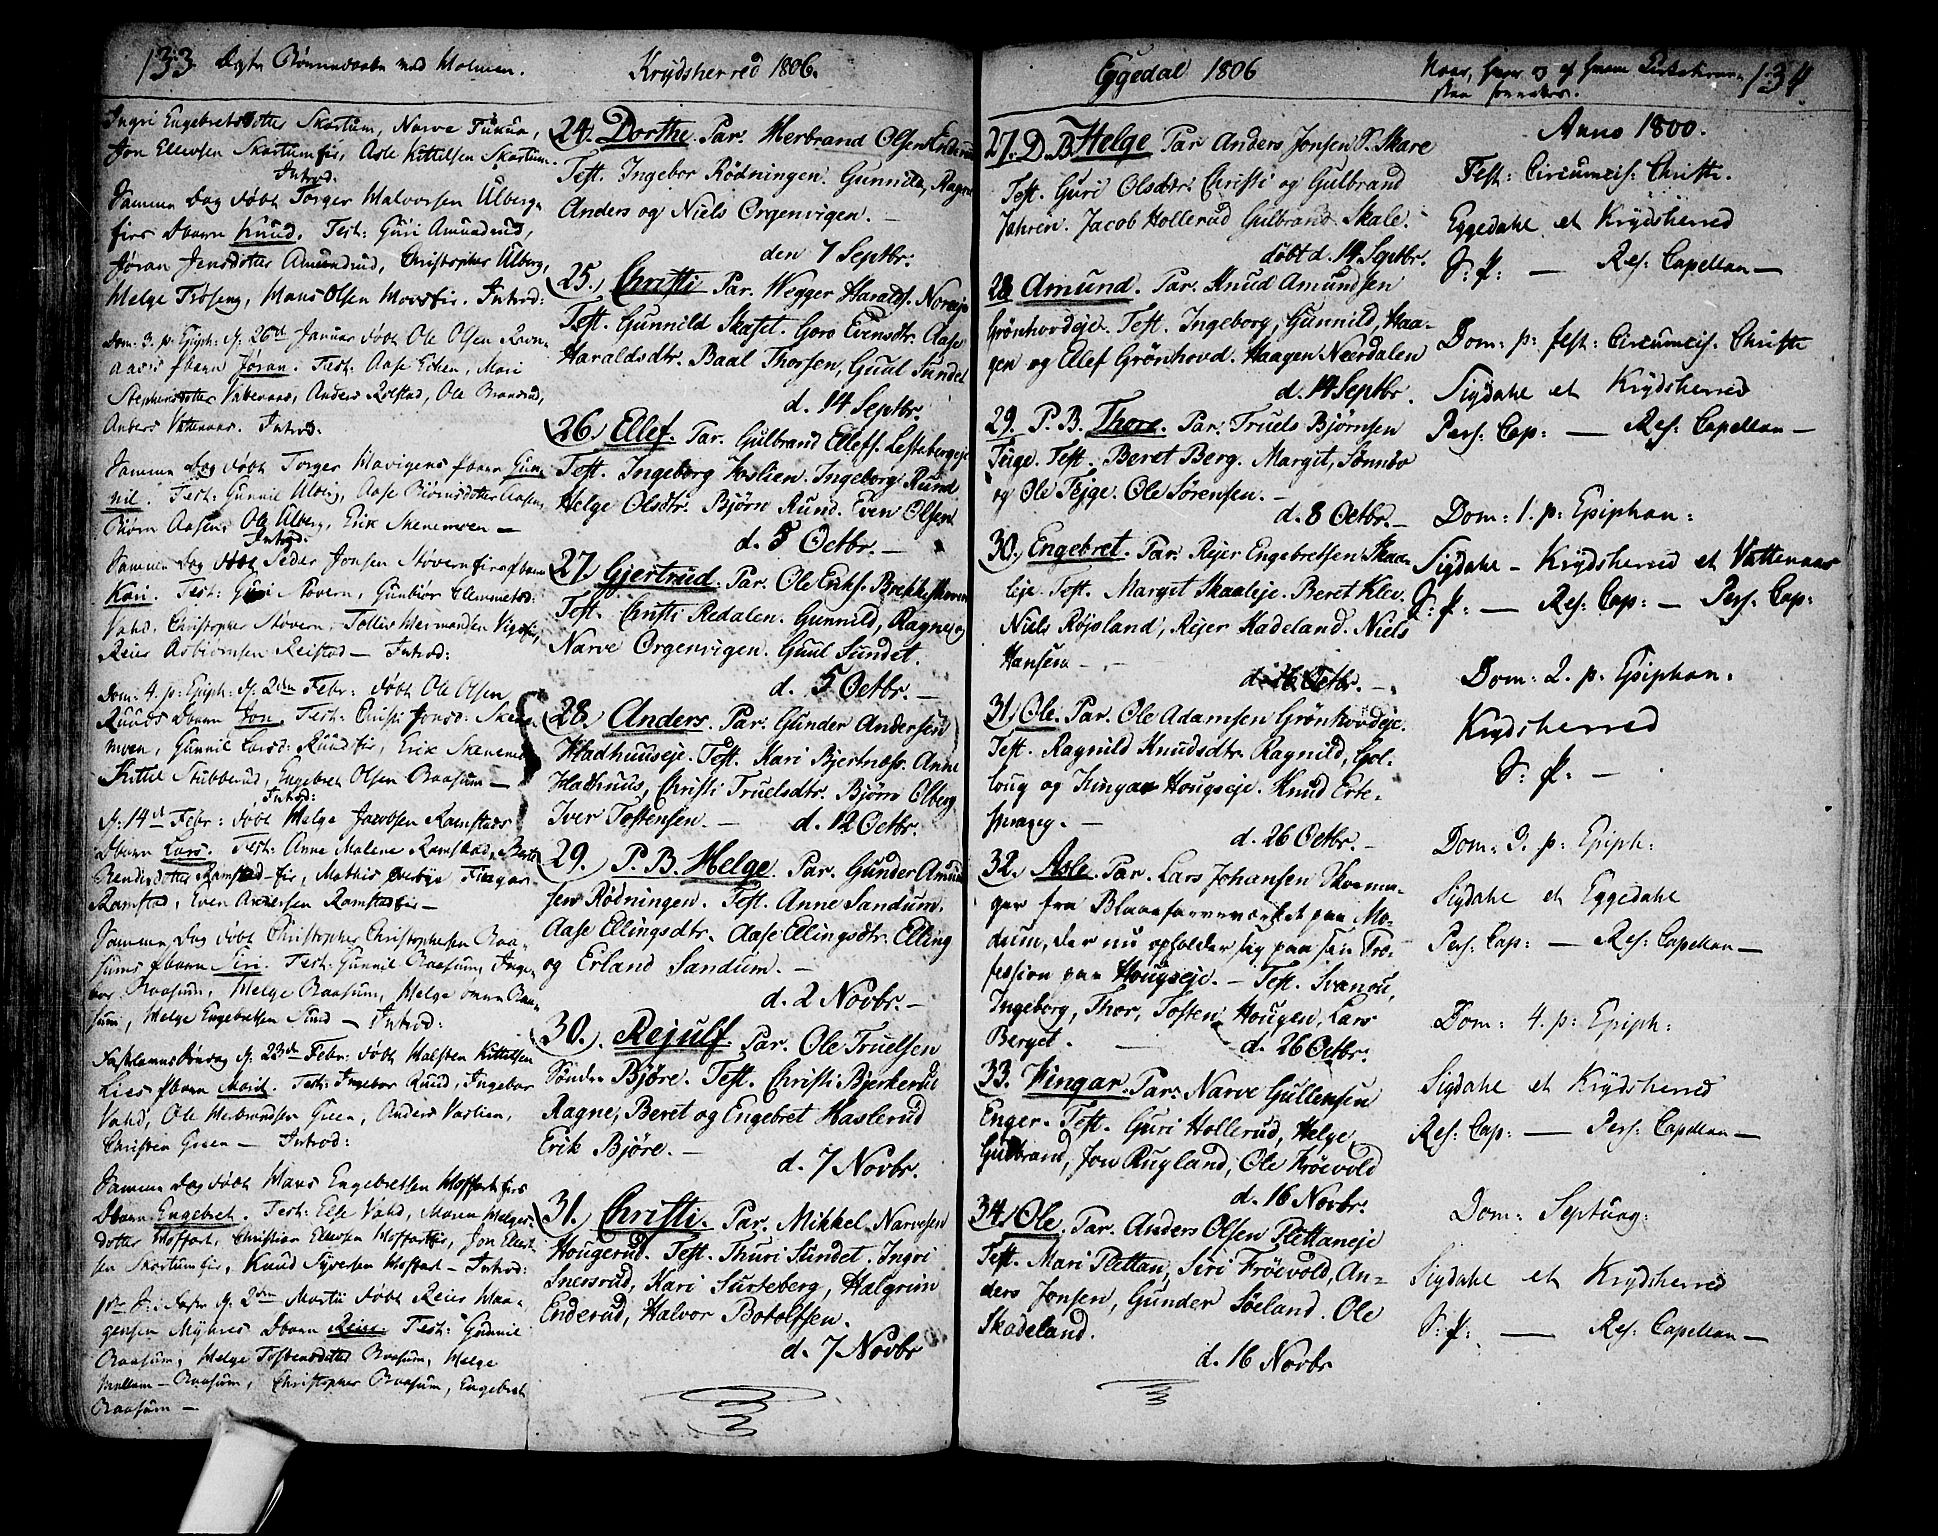 133 Ægte Børnedaabe med Holmen.
Ingri Engebretsdotter Skartum, Narve Fukua,
Jon Ellevsen Skartumfir, Asle Kittelsen Skartum.
Introd.
Samme Dag døbt Torger Halvorsen Ulberg-
firs Dbarn Knud. Test: Guri Amundrud,
Jøran Jensdotter Amundrud, Christopher Ulberg,
Helge Trøseng, Hans Olsen Moesfir. Introd:
Dom: 3. p: Epiph: d. 26de Januar døbt Ole Olsen Ravn-
aases Pbarn Jøran. Test: Aase Echen, Mari
Stephensdotter Vatenaas, Anders Rolstad, Ole Brandrud,
Anders Vatenaas. Introd:
Samme Dag døbt Torger Havigens Pbarn Gun-
nil. Test: Gunnil Ulbrg, Aase Biørnsdotter Aasen,
Biørn Aasen, Ole Ulberg, Erik Skenemoen —
Introd:
Samme Dag døbt Peder Jonsen Støvernfirs Pbarn
Kari. Test: Guri Støvern, Gunbiør Clemmetsd:
Vahd, Christopher Støvern, Tollef Hermandsen Vigsfir,
Reier Asbiørnsen Reistad — Introd:
Dom: 4. p: Epiph: d. 2den Febr: døbt Ole Olsen
Ruuds Dbarn Jon. Test: Christi Jonsd: Skene-
moen, Gunnil Larsd: Ruudfir, Erik Skenemoen
Kittel Stubberud, Engebret Olsen Raasum —
Introd:
d: 14de Febr: døbt Helge Jacobsen Ramstads
Dbarn Lars. Test: Anne Malene Ramstad, Berte
Randisdotter Ramstad-fir, Mathis Fingar
Ramstad, Even Andersen Ramstadfir —
Samme Dag døbt Christopher Christophersen Raa-
sums Pbarn Siri. Test: Gunnil Raasum, Inge-
bor Raasum, Helge Raasum, Helge Raa-
sum, Helge Engebretsen Sund — Introd:
Fastelavns Søndag d. 23de Febr: døbt Halsten Kittelsen
Lies Pbarn Marit. Test: Ingebor Ruud, Ingebor
Vahd, Ole Herbrandsen Green, Anders Vaslien,
Christen Green — Introd:
Samme Dag døbt Hans Engebretsen Hoffartfirs
Dbarn Engebret. Test: Else Vahd, Maren Helges-
dotter Hoffart, Christian Ellevsen Hoffartfir, Jon Ellev-
sen Skartumfir, Knud Syversen Hoffart — Introd:
1ste S: i Faste d. 2den Martii døbt Reier Haa-
gensen Myhres Dbarn Reier. Test: Gunnil
Raasum, Helge Tostensdotter Raasum, Helge
mellem-Raasum, Christopher Raasum, Engebret
Raasum —
Krydsherred 1806.
24. Dorthe. Par. Herbrand Olsen Enderud
Test. Ingebor Rödningen. Gunnild, Ragne
Anders og Niels Orgenvigen. —
den 7 Septbr.
25. Christi Par. Wegger Haralds. Noreeje
Test. Gunnild Skafet. Goro Evensdtr. Aase
Haraldsdtr. Baal Thorsen, Guul Sundet
d. 14 Septbr.
26. Ellef. Par. Gulbrand Ellefs. Lestebergeje
Test. Ingeborg Voslien. Ingeborg Rund
Helge Olsdtr. Björn Rund. Even Olsen
d. 5 Octbr. —
27. Gjertrud. Par. Ole Eriks. Brekkeskoven
Test. Christi Redalen. Gunnild, Ragne og
Narve Orgenvigen. Guul Sundet.
d. 5 Octbr. —
28. Anders. Par. Gunder Andersen
Hadhuuseje. Test. Kari Bjertnæs. Anne
Hadhuus, Christi Truelsdtr. Björn Olberg
Iver Tostensen. — d. 12 Octbr.
29. P. B. Helge. Par. Gunder Amund
sen Rödningen. Test. Anne Sandum.
Aase Ellingsdtr. Aase Ellingsdtr. Elling
og Erland Sandum. —
d. 2 Novbr. —
30. Rejulf. Par. Ole Truelsen
Sönde Björe. Test. Christi Bjerkerud
Ragne, Beret og Engebret Haslerud
Erik Björe. —
d. 7 Novbr.
31. Christi. Par. Mikkel Narvesen
Hougerud. Test. Thuri Sundet. Ingri
Snersrud, Kari Surteberg, Halgrim
Enderud, Halvor Botolfsen.
d. 7 Novbr
Eggedal 1806
27. D. B. Helge Par Anders Jonsen S. Skare
Test. Guri Olsdtr. Christi og Gulbrand
Jahren. Jacob Hollerud Gulbrand Skale.
döbt d. 14 Septbr.
28. Amund. Par. Knud Amundsen
Grönhovdeje. Test. Ingeborg, Gunnild, Haa-
gen og Ellef Grönhovd. Haagen Nordalen
d. 14 Septbr.
29. P. B. Thore. Par. Truels Björnsen
Teige. Test. Beret Berg. Margit, Sönnov
og Ole Tejge. Ole Sörensen. —
d. 8 Octbr. —
30. Engebret. Par. Rejer Engebretsen Skaa-
leje. Test. Marget Skaaleje. Beret Klev
Niels Röjsland, Rejer Kadeland. Niels
Hansen —
d. 16 Octbr. —
31. Ole. Par. Ole Adamsen Grönhovdeje.
Test. Ragnild Knudsdtr. Ragnild, Gol-
loug og Kingar Hougseje. Knud Erte-
speng. —
d. 26 Octbr. —
32. Asle. Par. Lars Johansen Skoma-
ger fra Blaafarveverket paa Mo-
dum, der nu opholder sig paa sin Pro-
fession paa Hougseje. — Test. Svanou,
Ingeborg, Thor, Tosten Hougen, Lars
Berget. — d. 26 Octbr.
33. Fingar. Par. Narve Gullensen
Enger. Test. Guri Hollerud, Helge
Gulbrand, Jon Rugland, Ole Fröevold
d. 16 Novbr.
34. Ole. Par. Anders Olsen Plettaneje
Test. Mari Plettan, Siri Fröevold, An-
ders Jonsen, Gunder Söeland. Ole
Skadeland.
d. 16 Novbr
134.
Anno 1800.
Fest: Circumcis: Christi.
Eggedahl et Krydsherred
S: P: — Res: Capellan —
Dom: p: fest: Circumcis: Christi
Sigdahl et Krydsherred
Pers: Cap: — Res: Capellan —
Dom: 1. p: Epiphan:
Sigdahl — Krydsherred et Vattenaas
S: P: — Res: Cap: — Pers: Cap:
Dom: 2. p: Epiphan:
Krydsherred
S: P: —
Dom: 3. p: Epiph:
Sigdahl et Eggedahl
Pers: Cap: — Res: Capellan —
Dom: 4. p: Epiph:
Sigdahl et Krydsherred
Res: Cap: — Pers: Capellan —
Dom: Septuag:
Sigdahl et Krydsherred
S: P: — Res: Capellan —